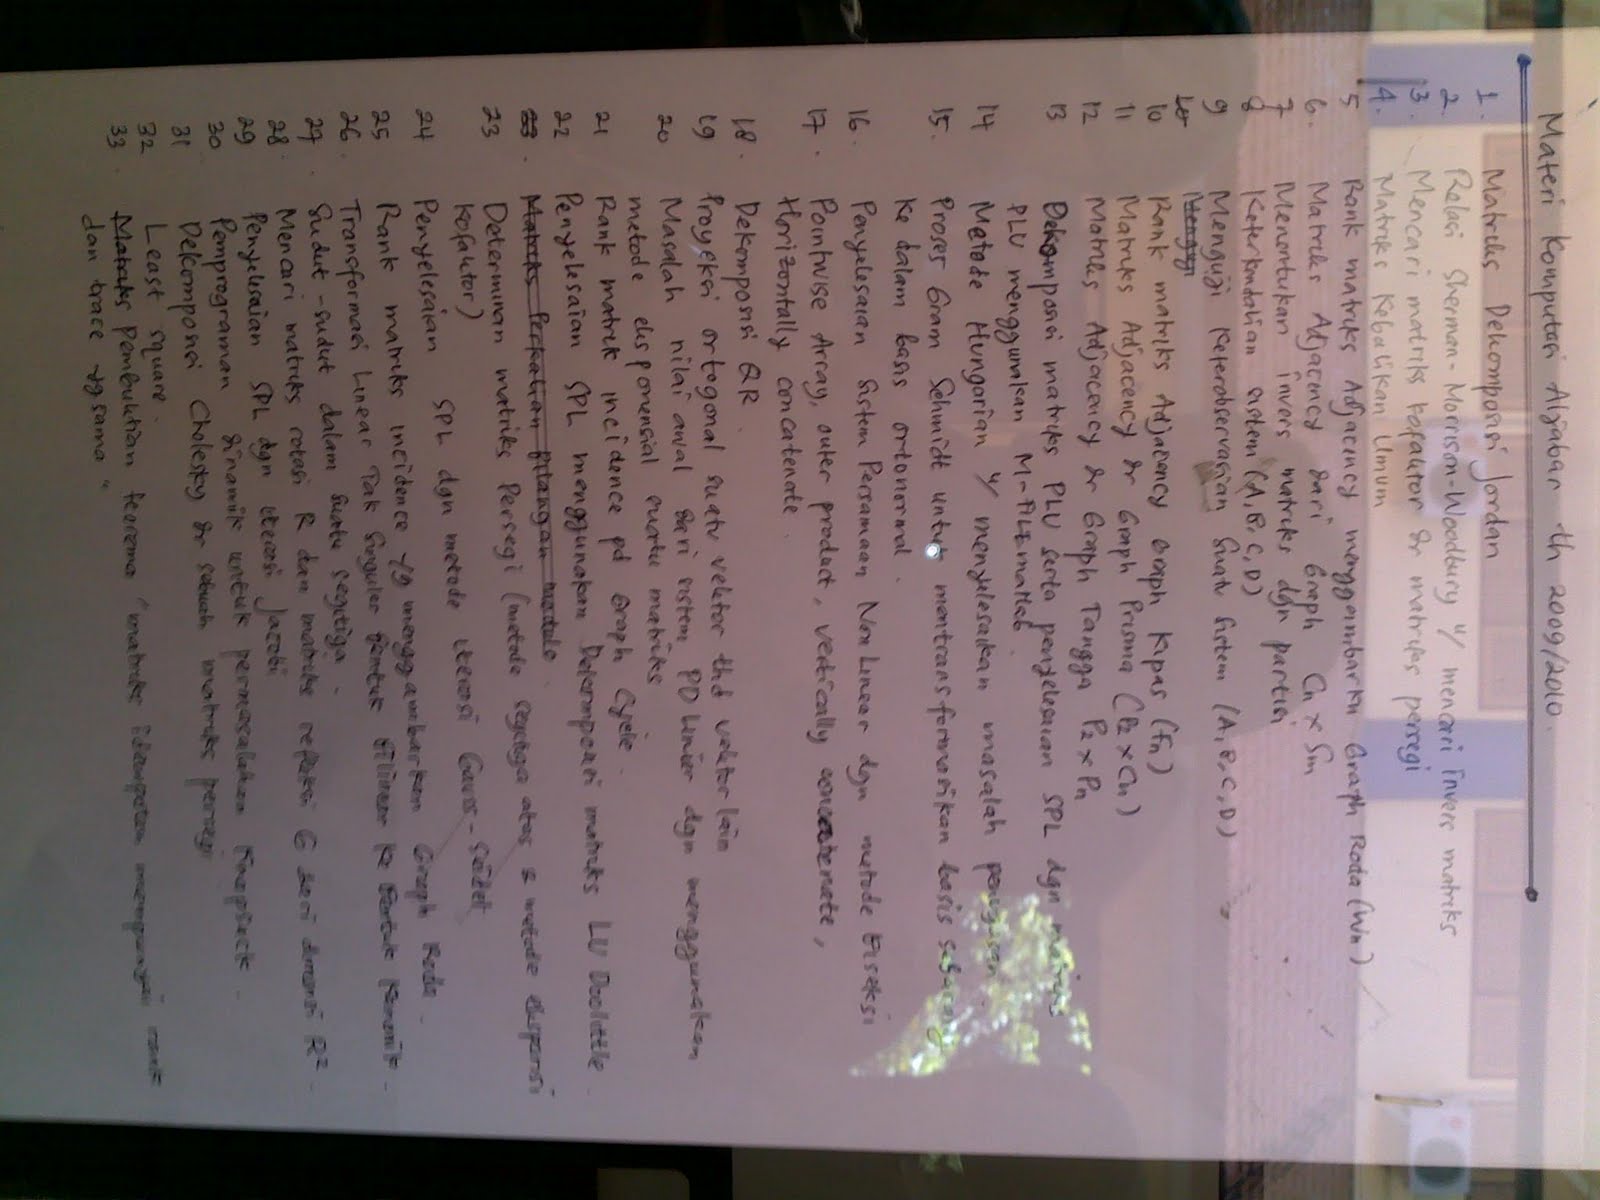 Materi Komputasi Aljabar th 2009/2010.
1. Matriks Dekomposisi Jordan
2 Relasi Sherman-Morrison-Woodbury u/ mencari invers matriks
3. Mencari matriks kofaktor dr matriks persegi
4. Matriks Kebalikan Umum
5 Rank matriks Adjacency menggambarkn Graph Roda (Wn)
6. Matriks Adjacency dari Graph Cn x Sm
7 Menentukan invers matriks dgn partisi
8 Keterkendalian sistem (A, B, C, D)
9 Menguji keterobservasian Suatu Sistem (A, B, C, D)
10 Rank matriks Adjacency Graph Kipas (Fn)
11 Matriks Adjacency dr Graph Prisma (P2 x Cn)
12 Matriks Adjacency dr Graph Tangga P2 x Pn
13 Dekomposisi matriks PLU serta penyelesaian SPL dgn matriks
PLU menggunakan M-FILE matlab
14 Metode Hungarian u/ menyelesaikan masalah penugasan
15. Proses Gram Schmidt untuk mentransformasikan basis sebarang
ke dalam basis ortonormal.
16. Penyelesaian Sistem Persamaan Non Linear dgn metode Biseksi
17. Pointwise Array, outer product, vertically concatenate,
Horizontally concatenate.
18. Dekomposisi QR
19 Proyeksi ortogonal suatu vektor thd vektor lain
20 Masalah nilai awal dari sistem PD Linier dgn menggunakan
metode eksponensial suatu matriks
21 Rank matrik incidence pd Graph Cycle.
22 Penyelesaian SPL menggunakan Dekomposisi matriks LU Doolittle.
23. Matriks Perkalian bilangan modulo.
23 Determinan matriks Persegi (metode segitiga atas & metode ekspansi
kofaktor)
24 Penyelesaian SPL dgn metode iterasi Gauss-Seidel
25 Rank matriks incidence yg menggambarkan Graph Roda.
26. Transformasi Linear Tak Singular Bentuk Bilinear ke Bentuk Kanonik.
27. Sudut-sudut dalam suatu segitiga.
28. Mencari matriks rotasi R dan matriks refleksi G dari dimensi R²
29 Penyelesaian SPL dgn iterasi Jacobi
30 Pemrograman dinamik untuk permasalahan Knapsack.
31 Dekomposisi Cholesky dr sebuah matriks persegi
32 Least square.
33 Matriks Pembuktian teorema "matriks idempoten mempunyai rank
dan trace yg sama"